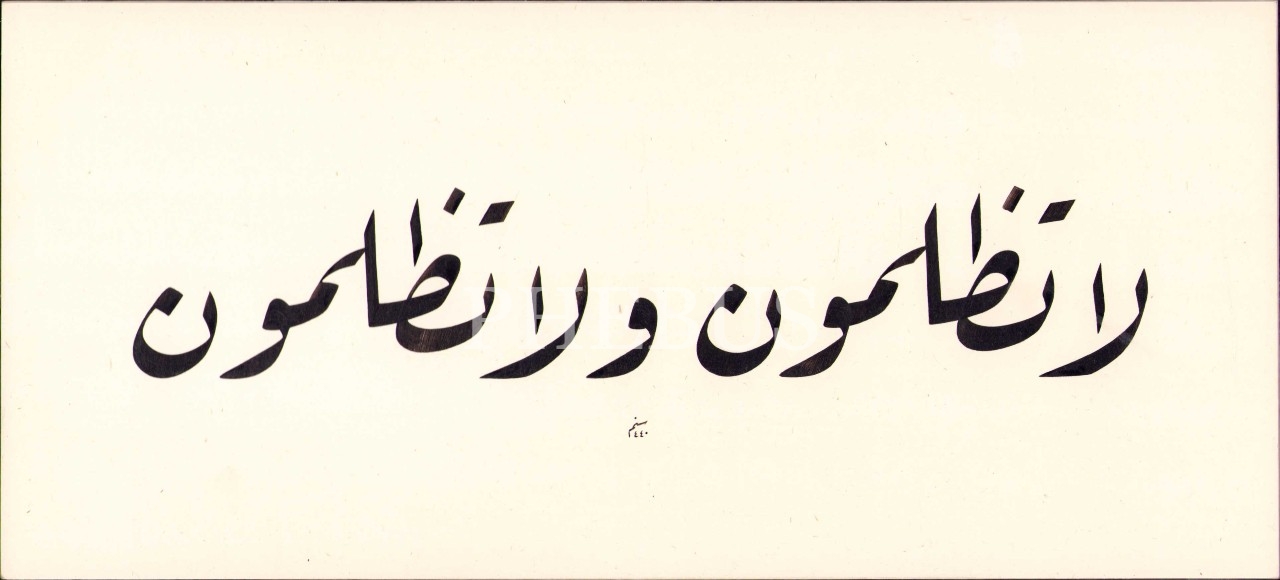 لا تظلمون ولا تظلمون
١٤٤٠
PHEBUS